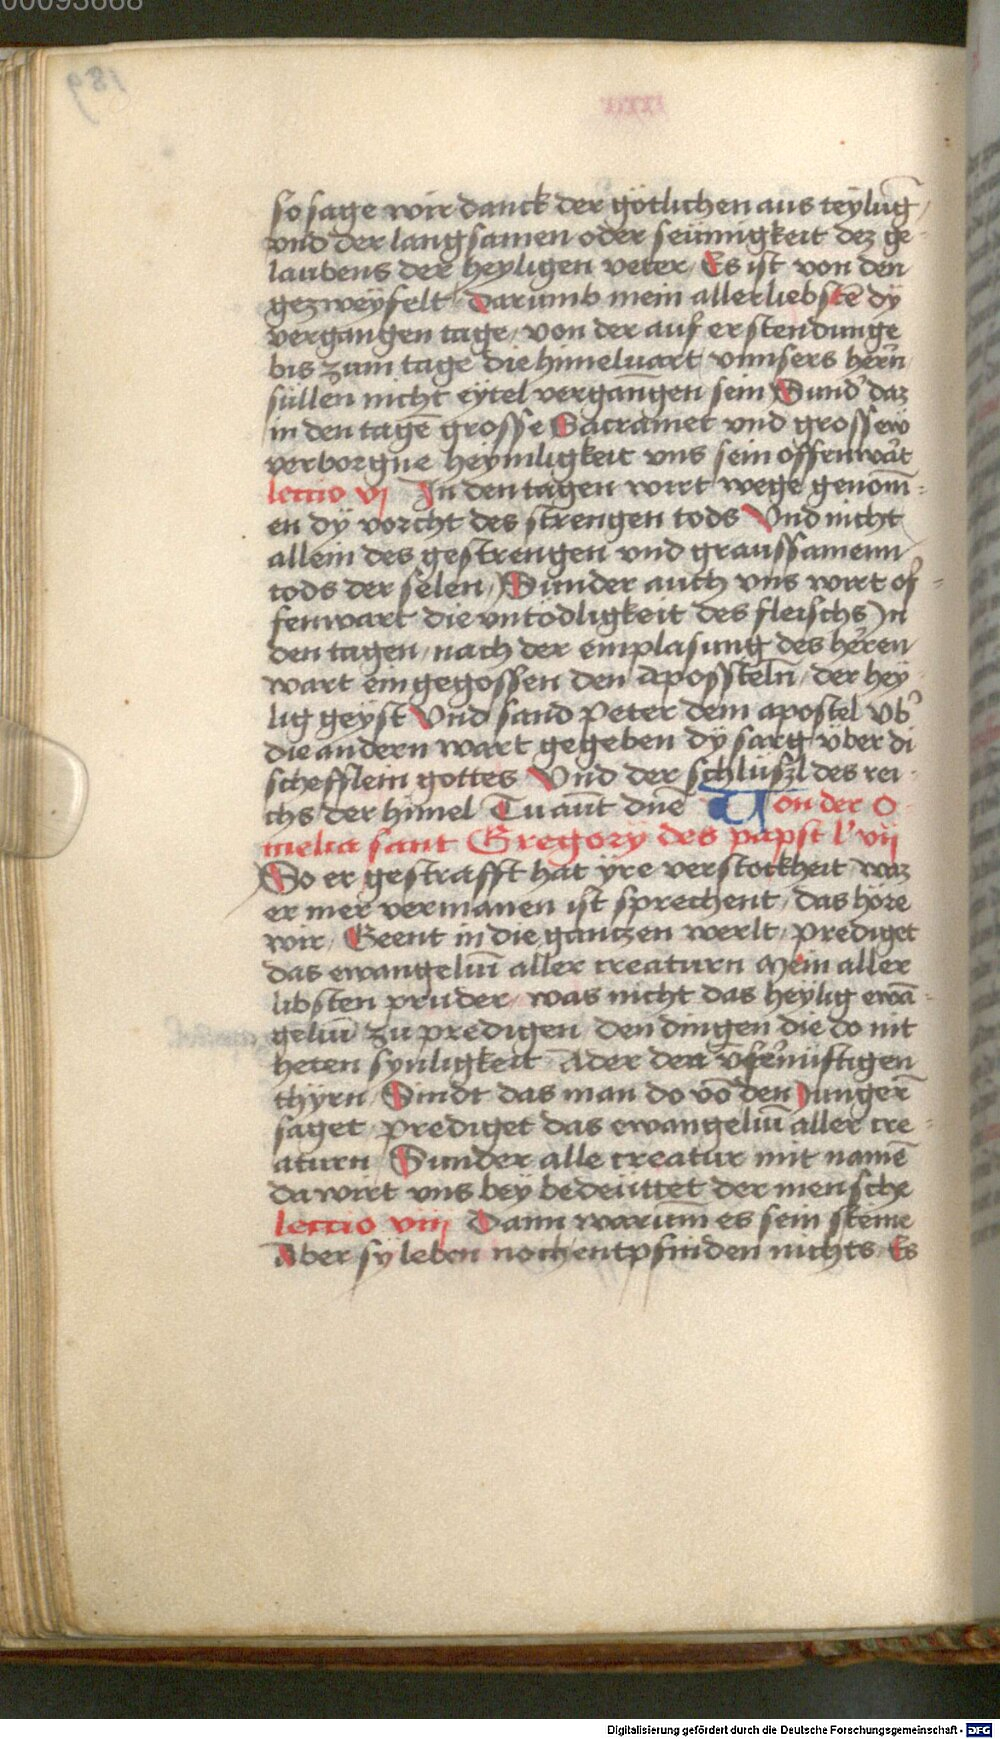 00093668
189
so sage wir danck der götlichen aus teylūg
vnd der langsamen oder seümigkeit dez ge
laubens der heyligen veter Es ist von den
gezweyfelt Darumb mein allerliebstē dÿ
vergangen tage von der auf erstendunge
bis zum tage die himeluart vnnsers herñ
süllen nicht eytel vergangen sein Sund' daz
in den tagē grosse Sacramēt vnd grossew
verborgne heymligkeit vns sein offenwārt
lectio vj In den tagen wirt wege genom̄-
en dÿ vorcht des strengen tods Vnd nicht
allein des gestrengen vnd graussamenn
tods der selen Sunder auch vns wirt of-
fenwart die vntodligkeit des fleischs In
den tagen nach der emplasung des herren
wart eingegossen den Aposstelñ der hey
lig geyst Vnd sand Peter dem apostel vb'
die andern wart gegeben dÿ sarg über di
schefflein gottes Vnd der schlüszl des rei-
chs der himel Tu aūt dnē Von der O
melia sant Gregorÿ des papst l' vij
So er gestrafft hat ÿre verstockheit waz
er mer vermanen ist sprechent das höre
wir Geent in die gantzen werlt prediget
das ewangeliū aller creaturn Mein aller
libsten pruder was nicht das heylig ewā-
geliū zu predigen den dingen die do nit
heten synligkeit Ader den vn̄ernüftigen
thÿrn Sindt das man do vō den Jungerñ
saget prediget das ewangeliū aller cre-
aturn Sunder alle creatur mit namē
da wirt vns bey bedeüttet der mensche
lectio viij Dann warum̄ es sein steine
Aber sÿ leben noch entpfinden nichts Es
Digitalisierung gefördert durch die Deutsche Forschungsgemeinschaft - DFG